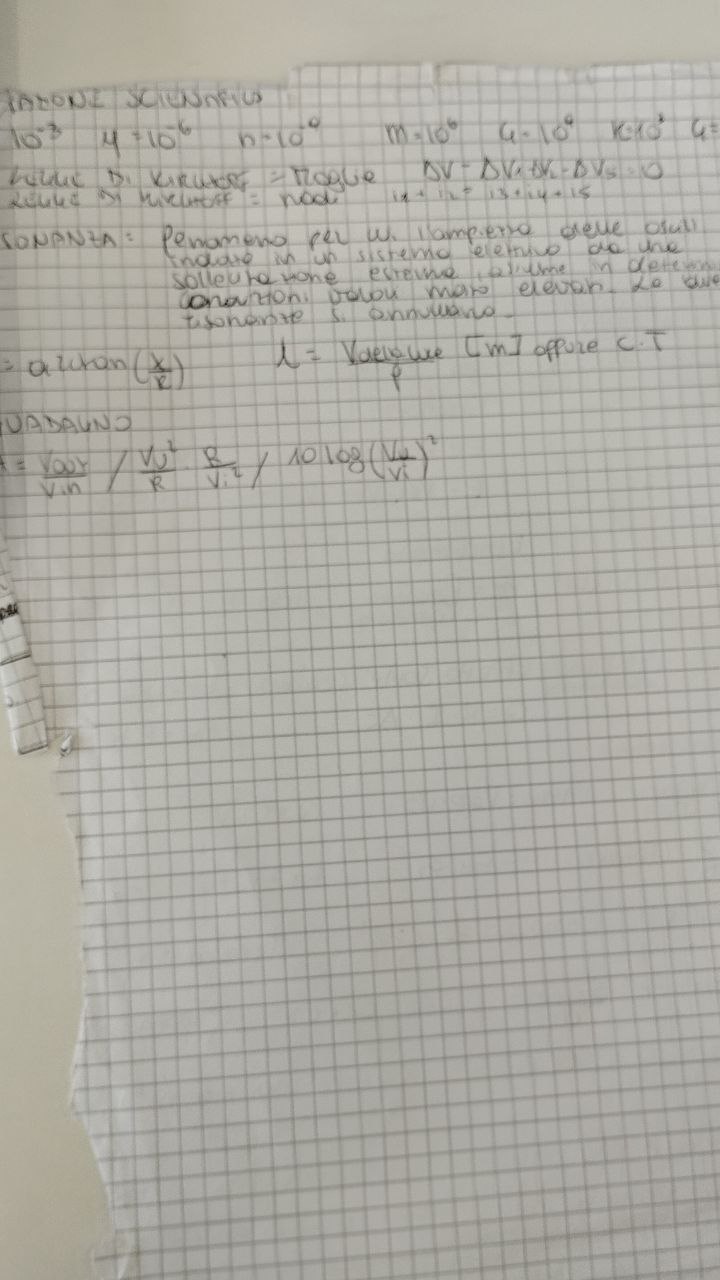 AZIONE SCIENTIFICA
10⁻³ μ = 10⁻⁶ n = 10⁻⁹ M = 10⁶ G = 10⁹ K = 10³ G =
LEGGE DI KIRCHOFF = Maglie ΔV - ΔV₁ - ΔV₂ - ΔV₃ = 0
LEGGE DI KIRCHOFF = nodi i1 + i2 = i3 + i4 + i5
SONANZA = fenomeno per cui l'ampiezza delle oscill
indotte in un sistema elettrico da una
sollecitazione esterna, assume in determin
condizioni valori molto elevati. Le due
risonanze si annullano
= arctan (X/R) λ = Vdella luce/f [m] oppure C·T
UADAGNO
= Vout/Vin / Vu²/R · R/Vi² / 10 log (Vu/Vi)²